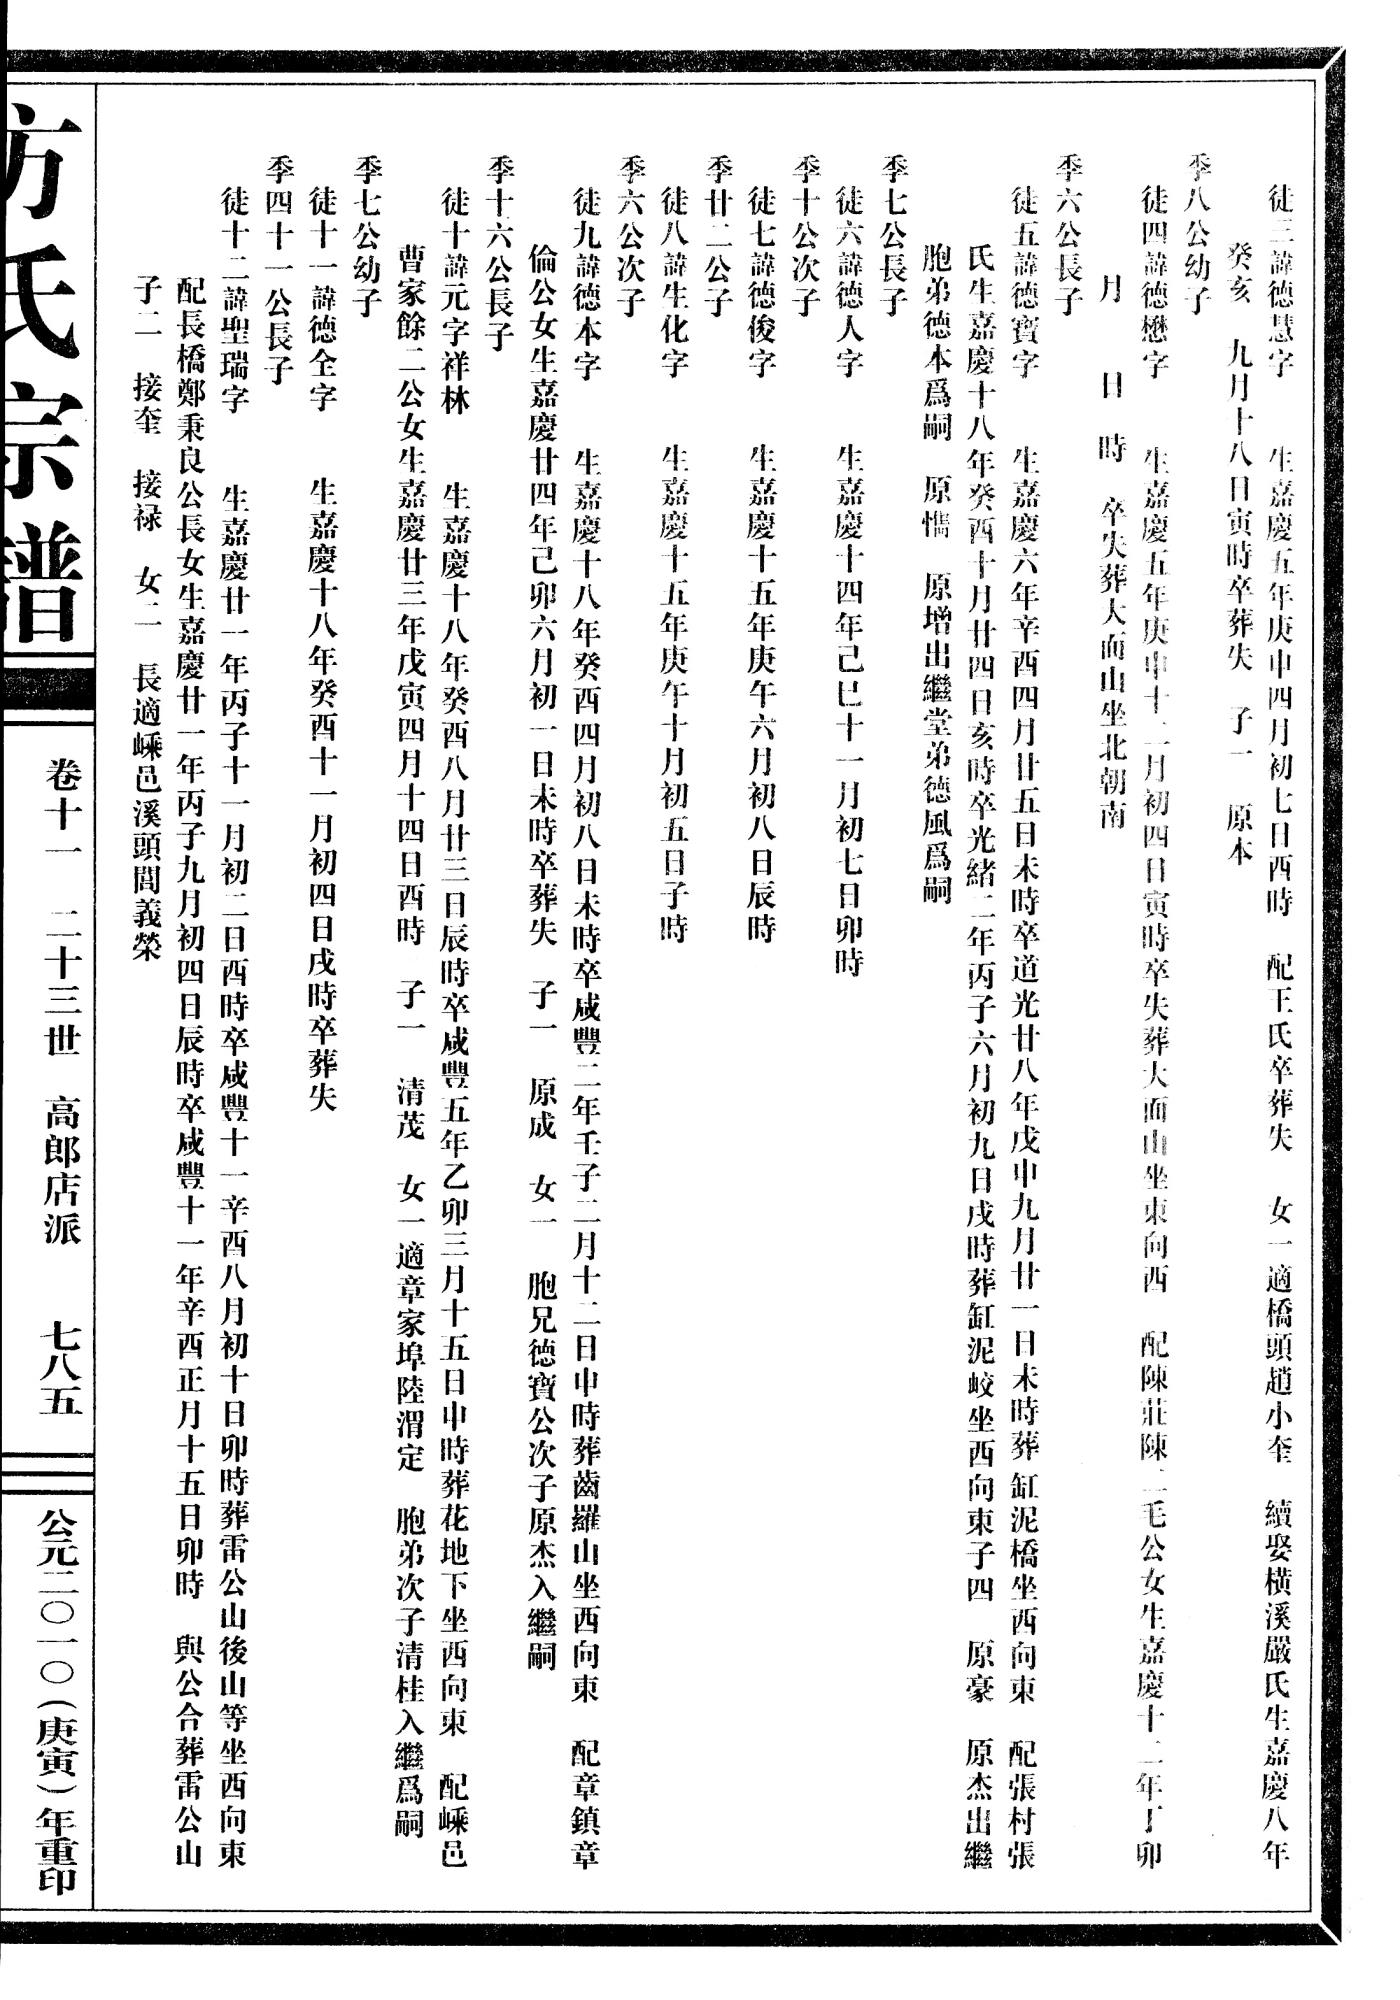 徒三諱德慧字　生嘉慶五年庚申四月初七日酉時　配王氏卒葬失　女一適橋頭趙小奎　續娶橫溪嚴氏生嘉慶八年
癸亥　九月十八日寅時卒葬失　子一　原本
季八公幼子
徒四諱德懋字　生嘉慶五年庚申十二月初四日寅時卒失葬大面山坐東向西　配陳莊陳二毛公女生嘉慶十二年丁卯
月　日　時　卒失葬大面山坐北朝南
季六公長子
徒五諱德寶字　生嘉慶六年辛酉四月廿五日未時卒道光廿八年戊申九月廿一日未時葬缸泥橋坐西向東　配張村張
氏生嘉慶十八年癸酉十月廿四日亥時卒光緒二年丙子六月初九日戌時葬缸泥蛟坐西向東子四　原豪　原杰出繼
胞弟德本爲嗣　原懏　原增出繼堂弟德風爲嗣
季七公長子
徒六諱德人字　生嘉慶十四年己巳十一月初七日卯時
季十公次子
徒七諱德俊字　生嘉慶十五年庚午六月初八日辰時
季廿二公子
徒八諱生化字　生嘉慶十五年庚午十月初五日子時
季六公次子
徒九諱德本字　生嘉慶十八年癸酉四月初八日未時卒咸豐二年壬子二月十二日申時葬齒羅山坐西向東　配章鎮章
倫公女生嘉慶廿四年己卯六月初一日未時卒葬失　子一　原成　女一　胞兄德寶公次子原杰入繼嗣
季十六公長子
徒十諱元字祥林　生嘉慶十八年癸酉八月廿三日辰時卒咸豐五年乙卯三月十五日申時葬花地下坐西向東　配嵊邑
曹家餘二公女生嘉慶廿三年戊寅四月十四日酉時　子一　清茂　女一適章家埠陸渭定　胞弟次子清桂入繼爲嗣
季七公幼子
徒十一諱德全字　生嘉慶十八年癸酉十一月初四日戌時卒葬失
季四十一公長子
徒十二諱聖瑞字　生嘉慶廿一年丙子十一月初二日酉時卒咸豐十一辛酉八月初十日卯時葬雷公山後山等坐西向東
配長橋鄭秉良公長女生嘉慶廿一年丙子九月初四日辰時卒咸豐十一年辛酉正月十五日卯時　與公合葬雷公山
子二　接奎　接禄　女二　長適嵊邑溪頭閭義榮
方氏宗譜　卷十一　二十三世　高郎店派　七八五　公元二〇一〇(庚寅)年重印